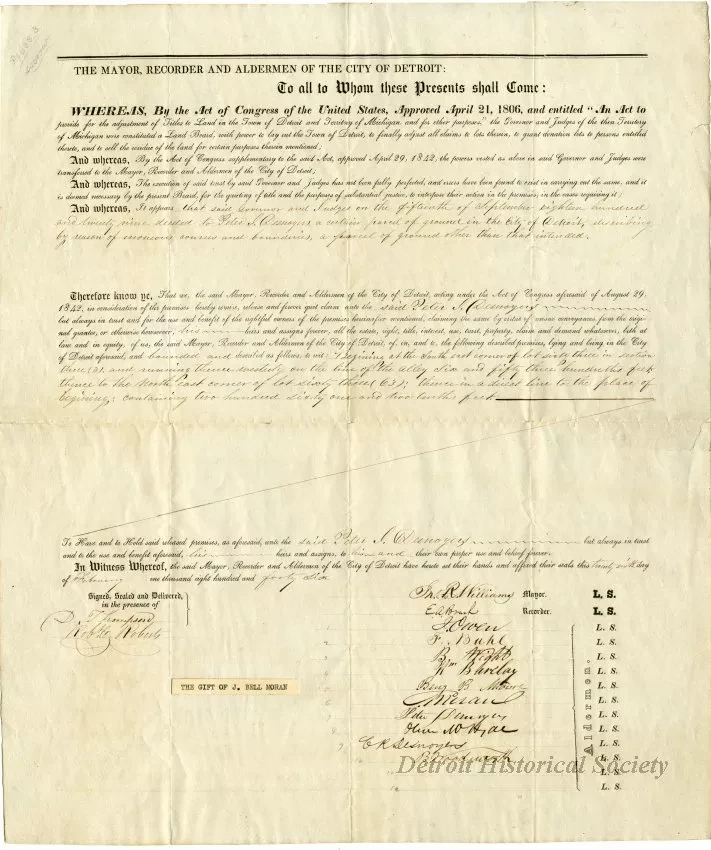 THE MAYOR, RECORDER AND ALDERMEN OF THE CITY OF DETROIT:
To all to Whom these Presents shall Come:
WHEREAS, By the Act of Congress of the United States, Approved April 21, 1806, and entitled "An Act to
provide for the adjustment of Titles to Land in the Town of Detroit and Territory of Michigan and for other purposes," the Governor and Judges of the then Territory
of Michigan were constituted a Land Board, with power to lay out the Town of Detroit, to finally adjust all claims to lots therein, to grant donation lots to persons entitled
thereto, and to sell the residue of the land for certain purposes therein mentioned;
And whereas, By the Act of Congress supplementary to the said Act, approved April 29, 1842, the powers vested as above in said Governor and Judges were
transferred to the Mayor, Recorder and Aldermen of the City of Detroit;
And whereas, The execution of said trust by said Governor and Judges has not been fully perfected, and errors have been found to exist in carrying out the same, and it
is deemed necessary by the present Board, for the quieting of title and the purposes of substantial justice, to interpose their action in the premises, in the cases requiring it;
And whereas, It appears that said Governor and Judges on the fifteenth of September eighteen hundred
and twenty nine deeded to Peter J. Desnoyers a certain parcel of ground in the City of Detroit, describing
by reason of erroneous courses and boundaries, a parcel of ground other than that intended.
Therefore know ye, That we, the said Mayor, Recorder and Aldermen of the City of Detroit, acting under the Act of Congress aforesaid of August 29,
1842, in consideration of the premises hereby remise, release and forever quit claim unto the said Peter J. Desnoyers
but always in trust and for the use and benefit of the rightful owners of the premises hereinafter mentioned, claiming the same by virtue of mesne conveyances from the origi-
nal grantee, or otherwise howsoever, his heirs and assigns forever, all the estate, right, title, interest, use, trust, property, claim and demand whatsoever, both at
law and in equity, of us, the said Mayor, Recorder and Aldermen of the City of Detroit, of, in, and to, the following described premises, lying and being in the City
of Detroit aforesaid, and bounded and described as follows, to wit: Begining at the South east corner of lot sixty three in section
three (3), and running thence easterly on the line of the alley Six and fifty three hundredths feet
thence to the North east corner of lot sixty three (63); thence in a direct line to the place of
begining; containing two hundred sixty one and two tenths feet
To Have and to Hold said released premises, as aforesaid, unto the said Peter J. Desnoyers but always in trust
and to the use and benefit aforesaid, his heirs and assigns, to him and their own proper use and behoof forever.
In Witness Whereof, the said Mayor, Recorder and Aldermen of the City of Detroit have hereto set their hands and affixed their seals this twenty sixth day
of February one thousand eight hundred and forty six
Signed, Sealed and Delivered,
in the presence of
D. Thompson
Robt. E. Roberts
Jn. R. Williams Mayor. L. S.
E.A. Brush Recorder. L. S.
J. Owen L. S.
F. Buhl L. S.
B. Wight L. S.
Wm Barclay L. S.
Benj. B. Moore L. S.
Moran L. S.
Peter Desnoyers L. S.
Oliver M Hyde L. S.
C R Desnoyers L. S.
B. Woodworth L. S.
L. S.
L. S.
Aldermen.
THE GIFT OF J. BELL MORAN
Detroit Historical Society